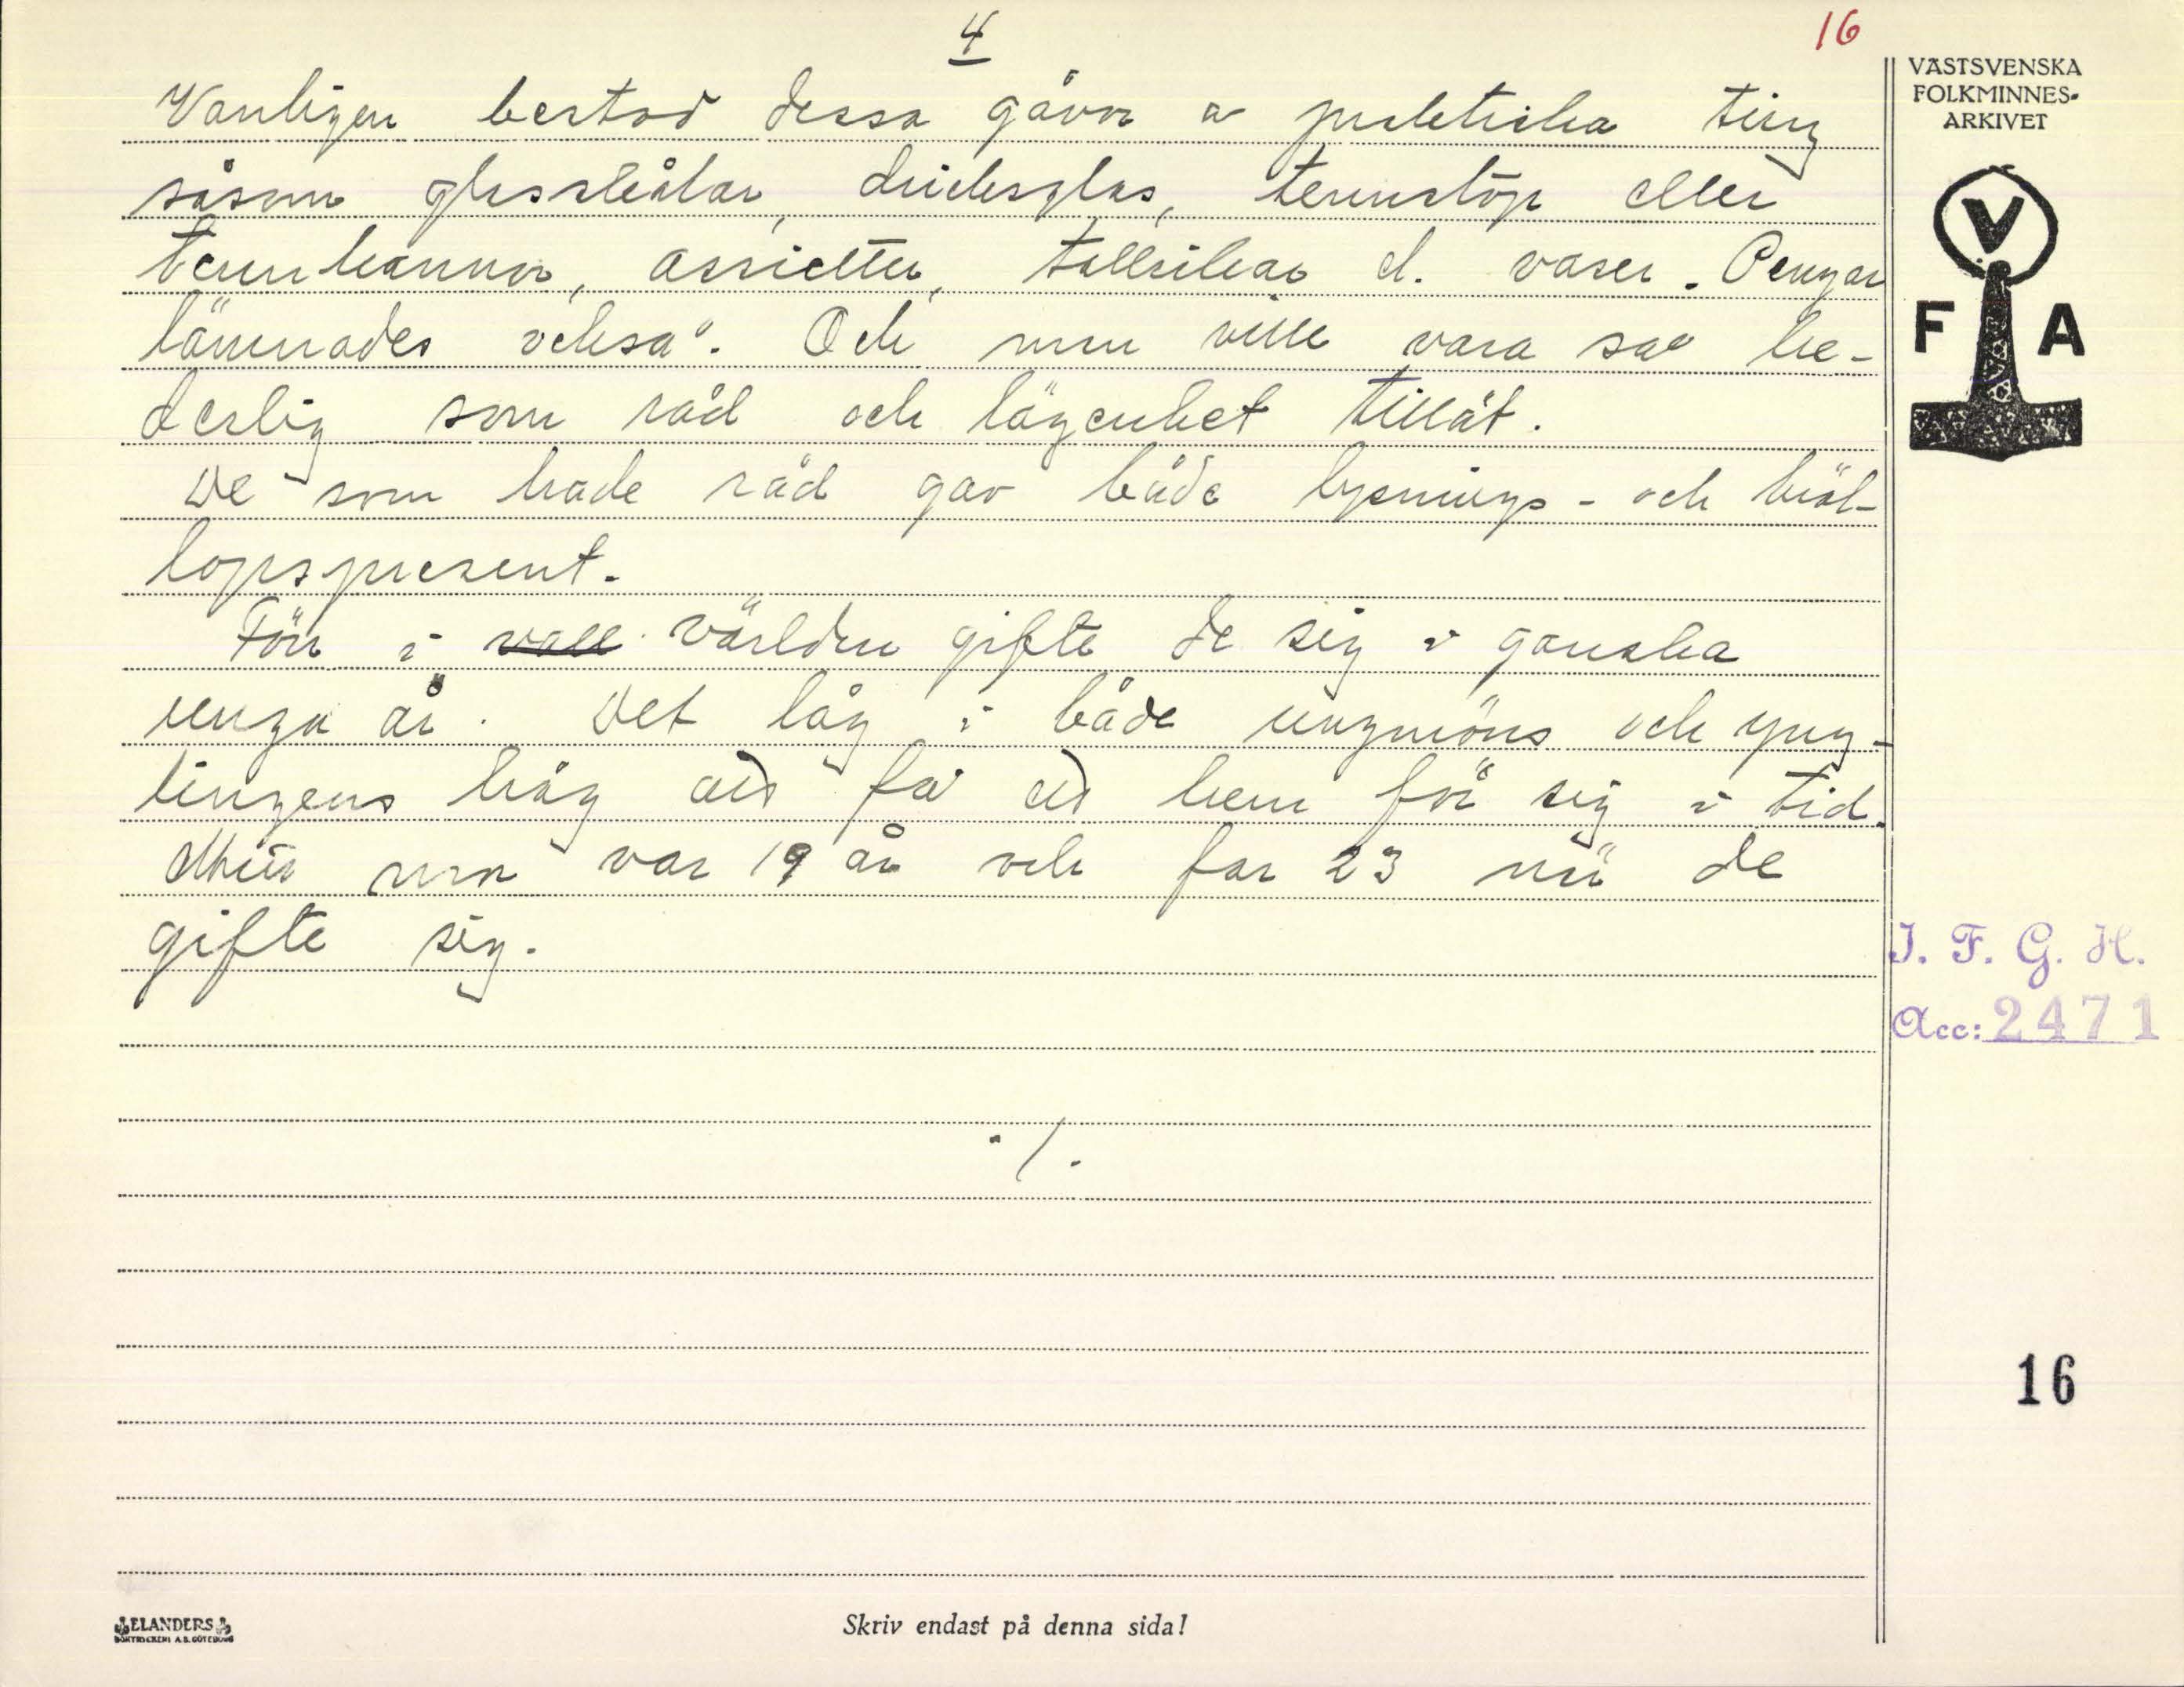 4
16
VÄSTSVENSKA
FOLKMINNES-
ARKIVET
V
F A
Vanligen bestod dessa gåvor av praktiska ting
såsom glasskålar, dricksglas, tennstop eller
tennkannor, assietter, tallrikar el. vaser. Pengar
lämnades också. Och man ville vara så he-
derlig som råd och lägenhet tillät.
De som hade råd gav både lysnings- och bröl-
lopspresent.
Förr i världen gifte de sig i ganska
unga år. Det låg i både ungmöns och yng-
lingens håg att få ett hem för sig i tid.
Min mor var 19 år och far 23 när de
gifte sig.
./.
I. F. G. H.
Acc: 2471
16
ELANDERS
BOKTRYCKERI A.B. GÖTEBORG
Skriv endast på denna sida!